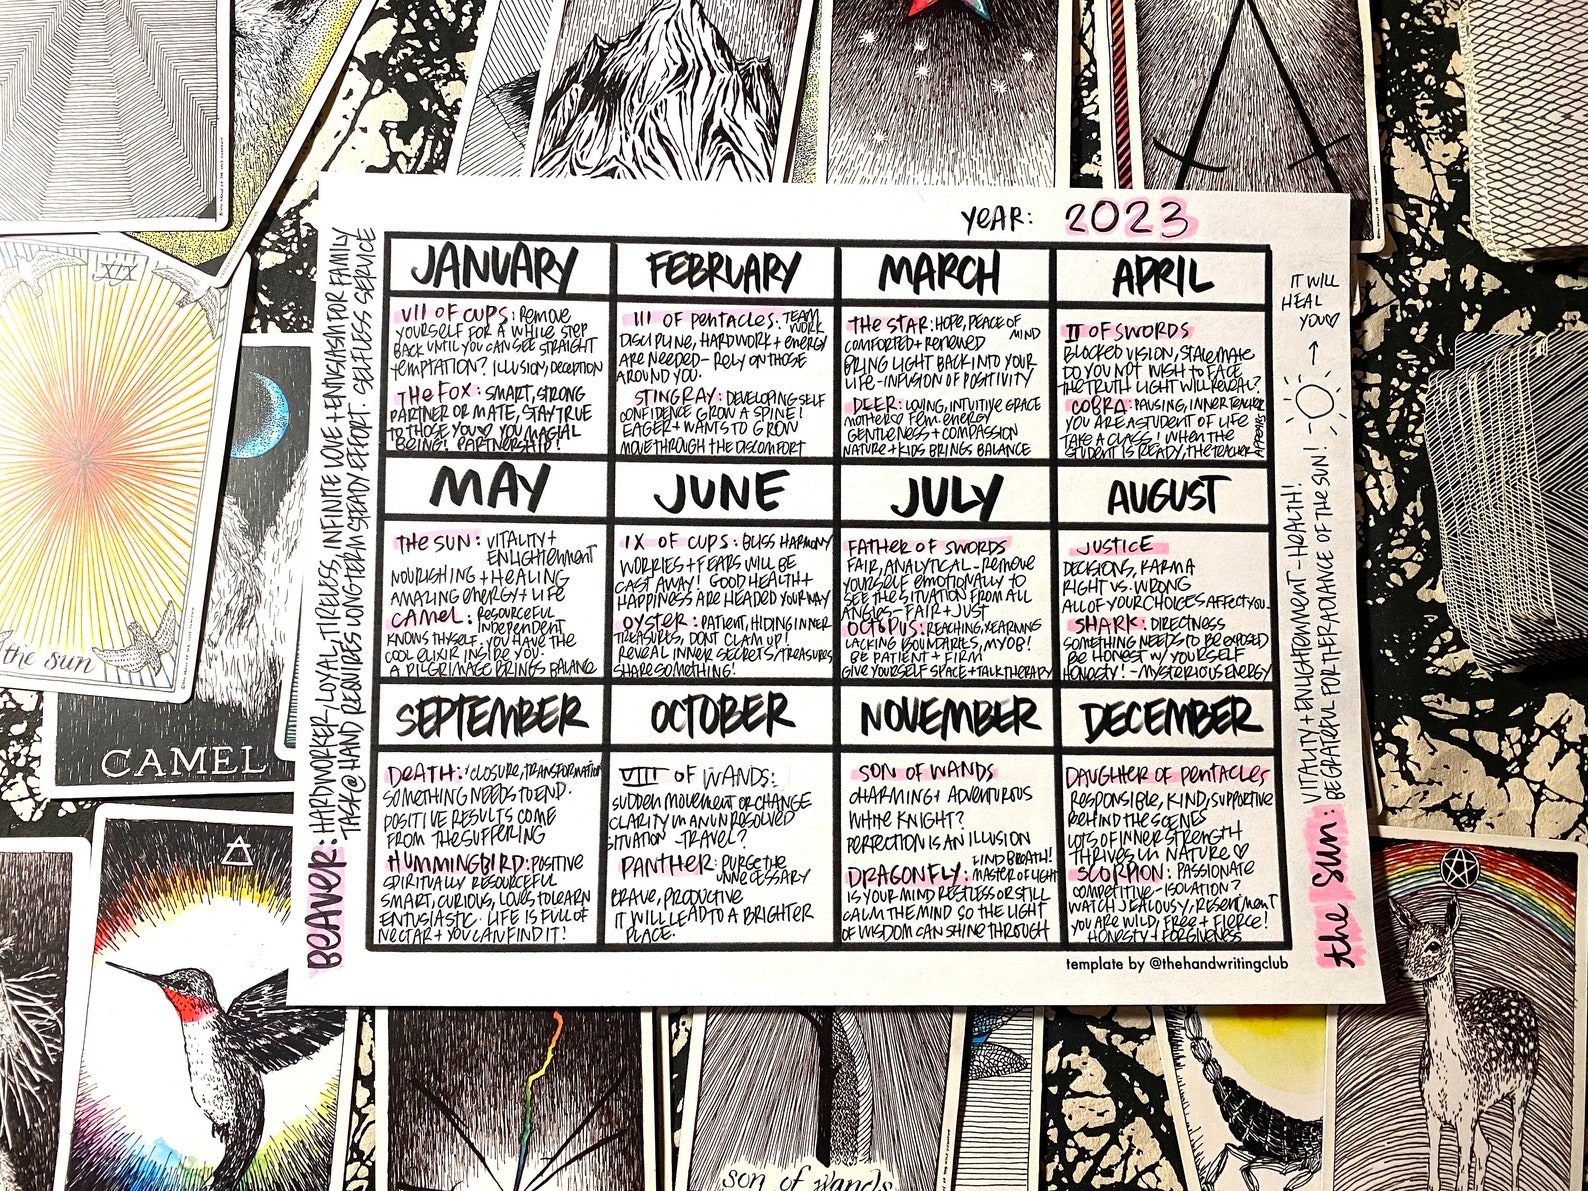 YEAR: 2023
JANUARY
VII OF CUPS: REMOVE
YOURSELF FOR A WHILE STEP
BACK UNTIL YOU CAN SEE STRAIGHT
TEMPTATION? ILLUSION, DECEPTION
THE FOX: SMART, STRONG
PARTNER OR MATE, STAY TRUE
TO THOSE YOU♡ YOU MAGIAL
BEING! PARTNERSHIP!
FEBRUARY
III OF PENTACLES: TEAM
WORK
DISCIPLINE, HARDWORK + ENERGY
ARE NEEDED - RELY ON THOSE
AROUND YOU.
STINGRAY: DEVELOPING SELF
CONFIDENCE GROW A SPINE!
EAGER + WANTS TO GROW
MOVE THROUGH THE DISCOMFORT
MARCH
THE STAR: HOPE, PEACE OF
MIND
COMFORTED + RENEWED
BRING LIGHT BACK INTO YOUR
LIFE - INFUSION OF POSITIVITY
DEER: LOVING, INTUITIVE GRACE
MOTHER♡ FEM. ENERGY
GENTLENESS + COMPASSION
NATURE + KIDS BRINGS BALANCE
APRIL
II OF SWORDS
BLOCKED VISION, STALEMATE
DO YOU NOT WISH TO FACE
THE TRUTH LIGHT WILL REVEAL?
COBRA: PAUSING, INNER TEACHER
YOU ARE A STUDENT OF LIFE
TAKE A CLASS! WHEN THE
STUDENT IS READY, THE TEACHER
APPEARS
MAY
THE SUN: VITALITY +
ENLIGHTENMENT
NOURISHING + HEALING
AMAZING ENERGY + LIFE
CAMEL: RESOURCEFUL
INDEPENDENT
KNOWS THYSELF. YOU HAVE THE
COOL ELIXIR INSIDE YOU.
A PILGRIMAGE BRINGS BALANCE
JUNE
IX OF CUPS: BLISS HARMONY
WORRIES + FEARS WILL BE
CAST AWAY! GOOD HEALTH +
HAPPINESS ARE HEADED YOUR WAY
OYSTER: PATIENT, HIDING INNER
TREASURES, DONT CLAM UP!
REVEAL INNER SECRETS/TREASURES
SHARE SOMETHING!
JULY
FATHER OF SWORDS
FAIR, ANALYTICAL - REMOVE
YOURSELF EMOTIONALLY TO
SEE THE SITUATION FROM ALL
ANGLES - FAIR + JUST
OCTOPUS: REACHING, YEARNING
LACKING BOUNDARIES, MYOB!
BE PATIENT + FIRM
GIVE YOURSELF SPACE + TALK THERAPY
AUGUST
JUSTICE
DECISIONS, KARMA
RIGHT VS. WRONG
ALL OF YOUR CHOICES AFFECT YOU.
SHARK: DIRECTNESS
SOMETHING NEEDS TO BE EXPOSED
BE HONEST W/ YOURSELF
HONESTY! - MYSTERIOUS ENERGY
SEPTEMBER
DEATH: CLOSURE, TRANSFORMATION
SOMETHING NEEDS TO END.
POSITIVE RESULTS COME
FROM THE SUFFERING
HUMMINGBIRD: POSITIVE
SPIRITUALLY RESOURCEFUL
SMART, CURIOUS, LOVES TO LEARN
ENTUSIASTIC. LIFE IS FULL OF
NECTAR + YOU CAN FIND IT!
OCTOBER
VIII OF WANDS:
SUDDEN MOVEMENT OR CHANGE
CLARITY IN AN UNRESOLVED
SITUATION - TRAVEL?
PANTHER: PURGE THE
UNNECESSARY
BRAVE, PRODUCTIVE
IT WILL LEAD TO A BRIGHTER
PLACE.
NOVEMBER
SON OF WANDS
CHARMING + ADVENTUROUS
WHITE KNIGHT?
PERFECTION IS AN ILLUSION
DRAGONFLY: FIND BREATH!
MASTER OF LIGHT
IS YOUR MIND RESTLESS OR STILL
CALM THE MIND SO THE LIGHT
OF WISDOM CAN SHINE THROUGH
DECEMBER
DAUGHTER OF PENTACLES
RESPONSIBLE, KIND, SUPPORTIVE
BEHIND THE SCENES
LOTS OF INNER STRENGTH
THRIVES IN NATURE ♡
SCORPION: PASSIONATE
COMPETITIVE - ISOLATION?
WATCH JEALOUSY, RESENTMENT
YOU ARE WILD, FREE + FIERCE!
HONESTY + FORGIVENESS
template by @thehandwritingclub
BEAVER: HARDWORKER, LOYAL, TIRELESS, INFINITE LOVE + ENTUSIASM FOR FAMILY
TASK @ HAND REQUIRES LONG-TERM STEADY EFFORT. SELFLESS SERVICE
the sun: VITALITY + ENLIGHTENMENT - HEALTH!
BE GRATEFUL FOR THE RADIANCE OF THE SUN!
IT WILL
HEAL
YOU♡
XIX
the sun
CAMEL
son of wands